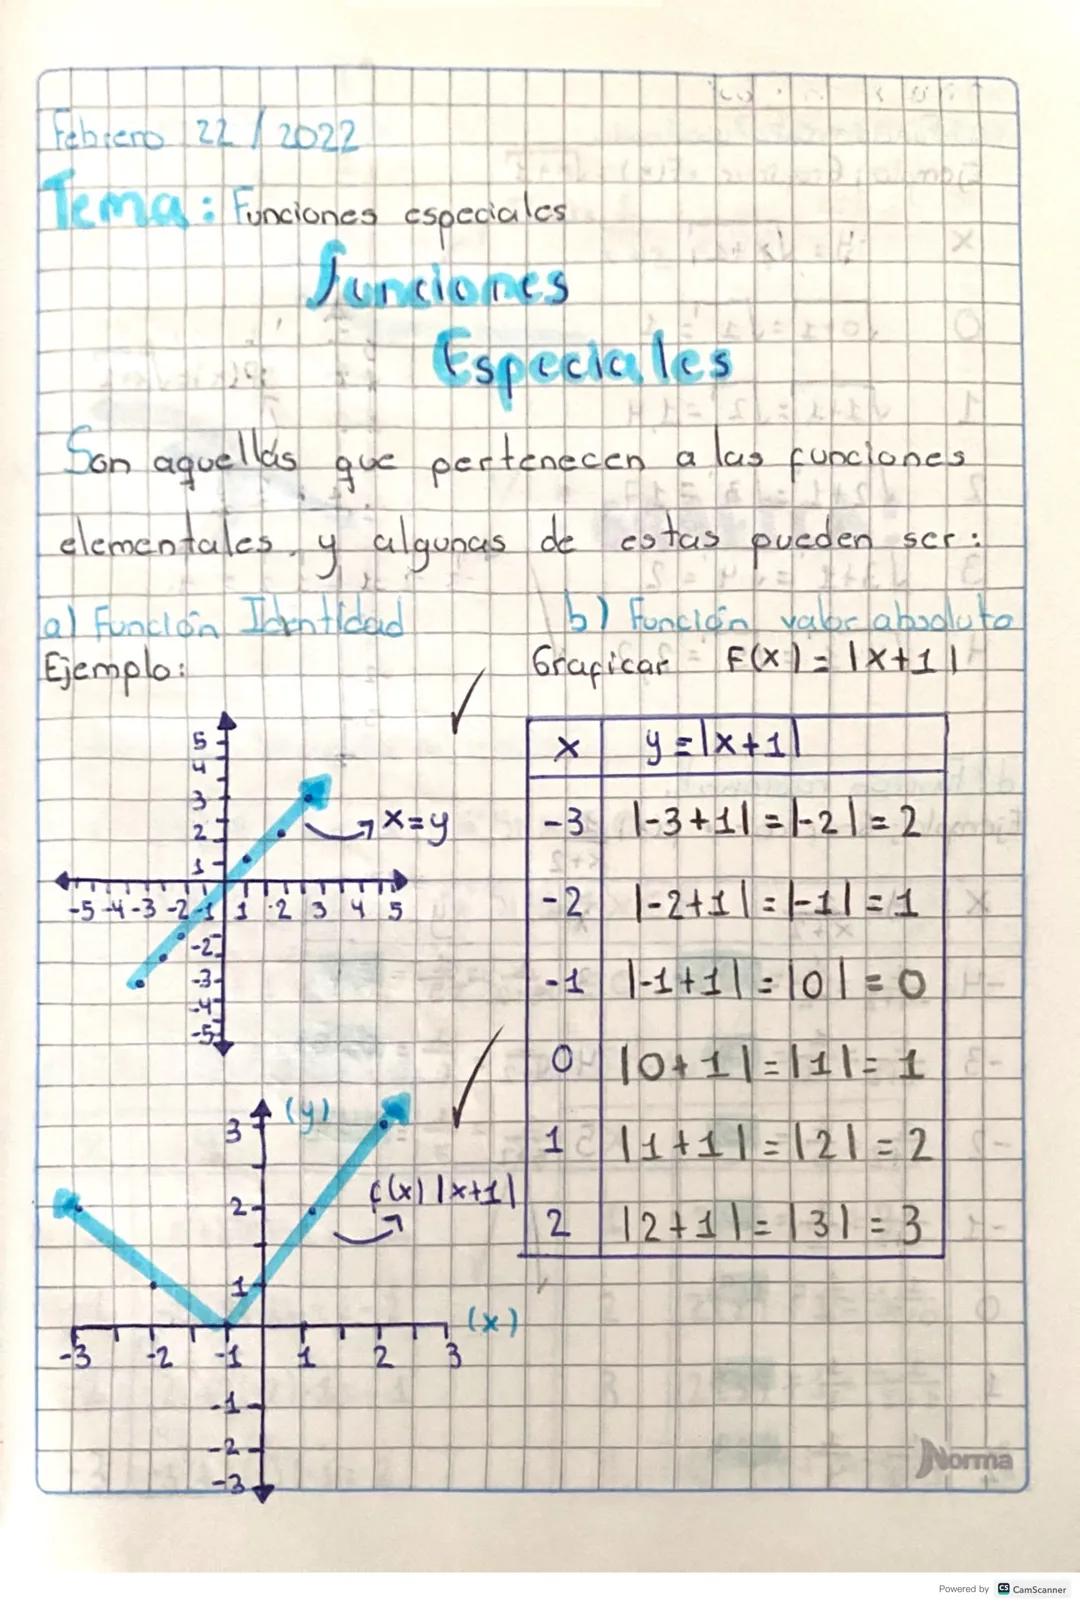 Febrero 22 / 2022
Tema: Funciones especiales
Funciones
Especiales
Son aquellas que pertenecen a las funciones
elementales y algunas de estas pueden ser:
a) Función Identidad
Ejemplo:
5
4
3
2
1
-5 -4 -3 -2 -1 1 2 3 4 5
-2
-3
-4
-5
x=y
b) Función valor absoluto
Graficar F(x) = |x+1|
x y = |x+1|
-3 |-3+1| = |-2| = 2
-2 |-2+1| = |-1| = 1
-1 |-1+1| = |0| = 0
0 |0+1| = |1| = 1
1 |1+1| = |2| = 2
2 |2+1| = |3| = 3
3 (y)
f(x) |x+1|
2
1
(x)
-3 -2 -1 1 2 3
-1
-2
-3
Norma
Powered by CS CamScanner